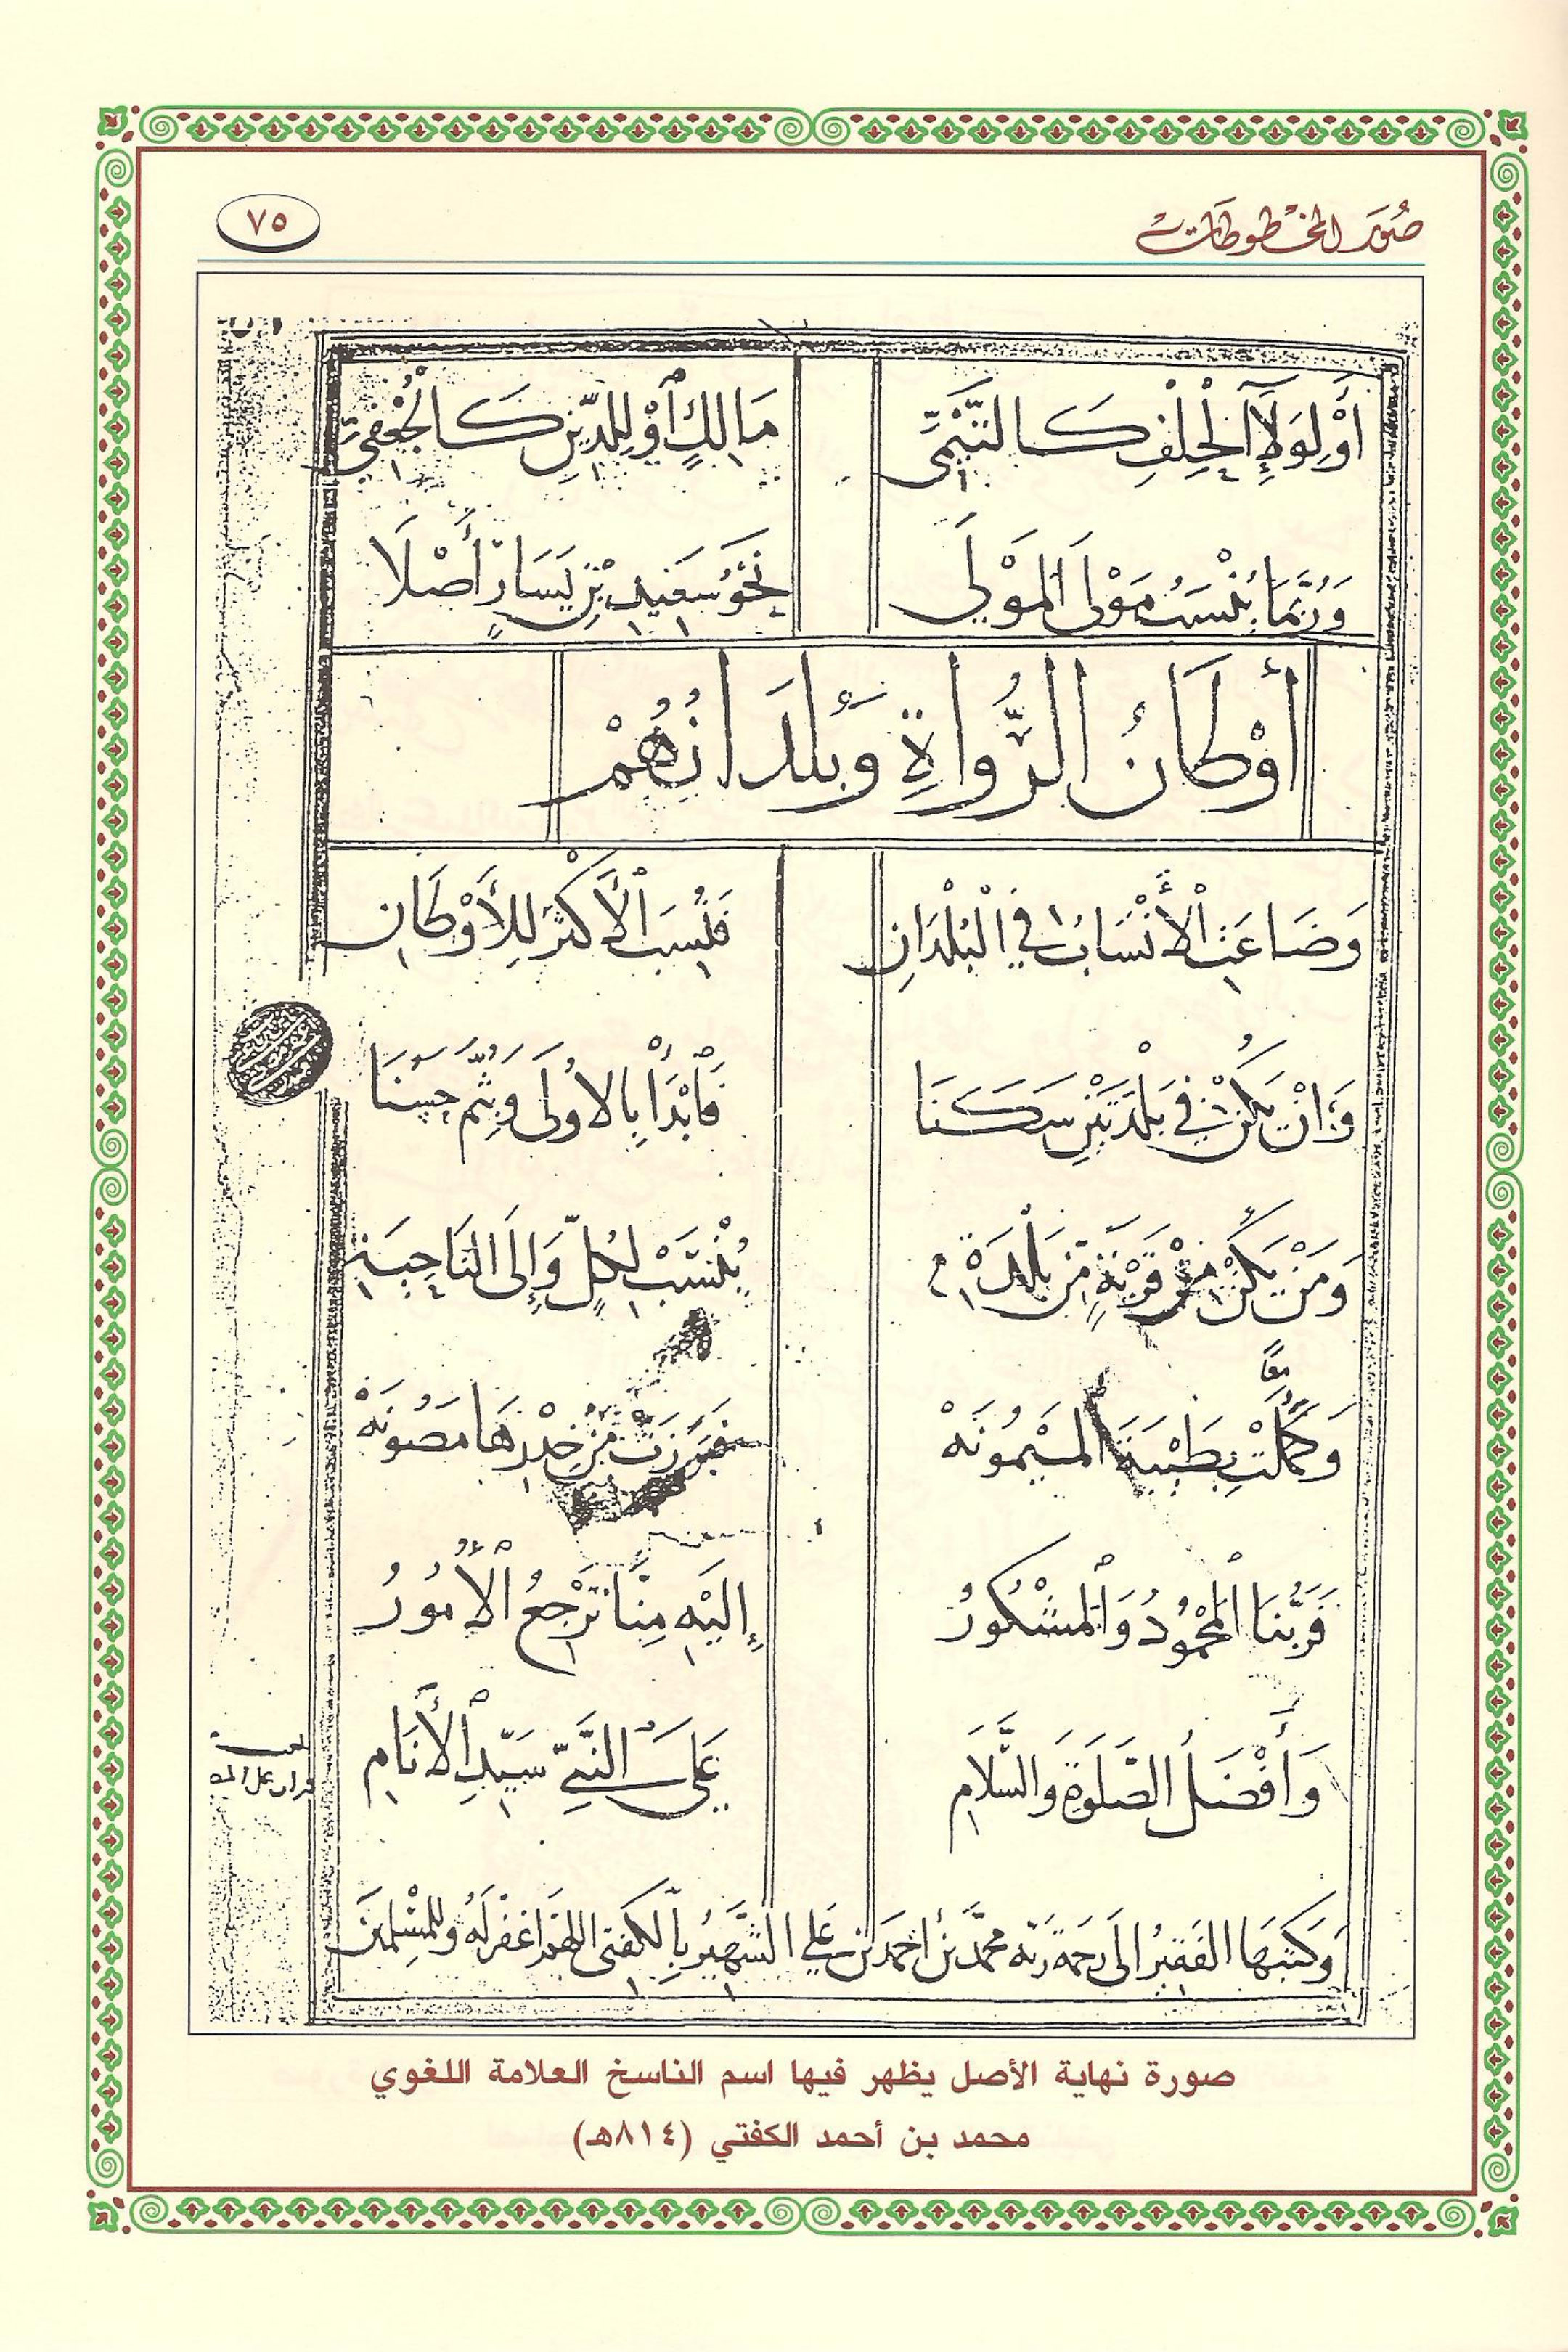 صُوَر المخطوطات
٧٥
أَوْ لِوَلَاءِ الْحِلْفِ كَالتَّيْمِيّ مَالِكٍ أَوْ لِلدِّينِ كَالْجُعْفِيِّ
وَرُبَّمَا يُنْسَبُ مَوْلَى الْمَوْلَى نَحْوُ سَعِيدِ بْنِ يَسَارٍ أَصْلَا
أَوْطَانُ الرُّوَاةِ وَبُلْدَانُهُمْ
وَضَاعَتِ الْأَنْسَابُ فِي الْبُلْدَانِ فَنُسِبَ الْأَكْثَرُ لِلْأَوْطَانِ
وَإِنْ يَكُنْ فِي بَلْدَتَيْنِ سَكَنَا فَابْدَأْ بِالْأُولَى وَبِثُمَّ حَسُنَا
وَمَنْ يَكُنْ مِنْ قَرْيَةٍ مِنْ بَلْدَةِ يُنْسَبْ لِكُلٍّ وَإِلَى النَّاحِيَةِ
وَكَمُلَتْ بِطَيْبَةَ الْمَيْمُونَهْ فَبَرَزَتْ مِنْ خِدْرِهَا مَصُونَهْ
فَرَبُّنَا الْمَحْمُودُ وَالْمَشْكُورُ إِلَيْهِ مِنَّا تَرْجِعُ الْأُمُورُ
وَأَفْضَلُ الصَّلَوةِ وَالسَّلَامِ عَلَى النَّبِيِّ سَيِّدِ الْأَنَامِ
وَكَتَبَهَا الْفَقِيرُ إِلَى رَحْمَةِ رَبِّهِ مُحَمَّدُ بْنُ أَحْمَدَ بْنِ عَلِي الشَّهِيرُ بِالْكَفْتِي اللَّهُمَّ اغْفِرْ لَهُ وَلِلْمُسْلِمِينَ
صورة نهاية الأصل يظهر فيها اسم الناسخ العلامة اللغوي
محمد بن أحمد الكفتي (٨١٤هـ)